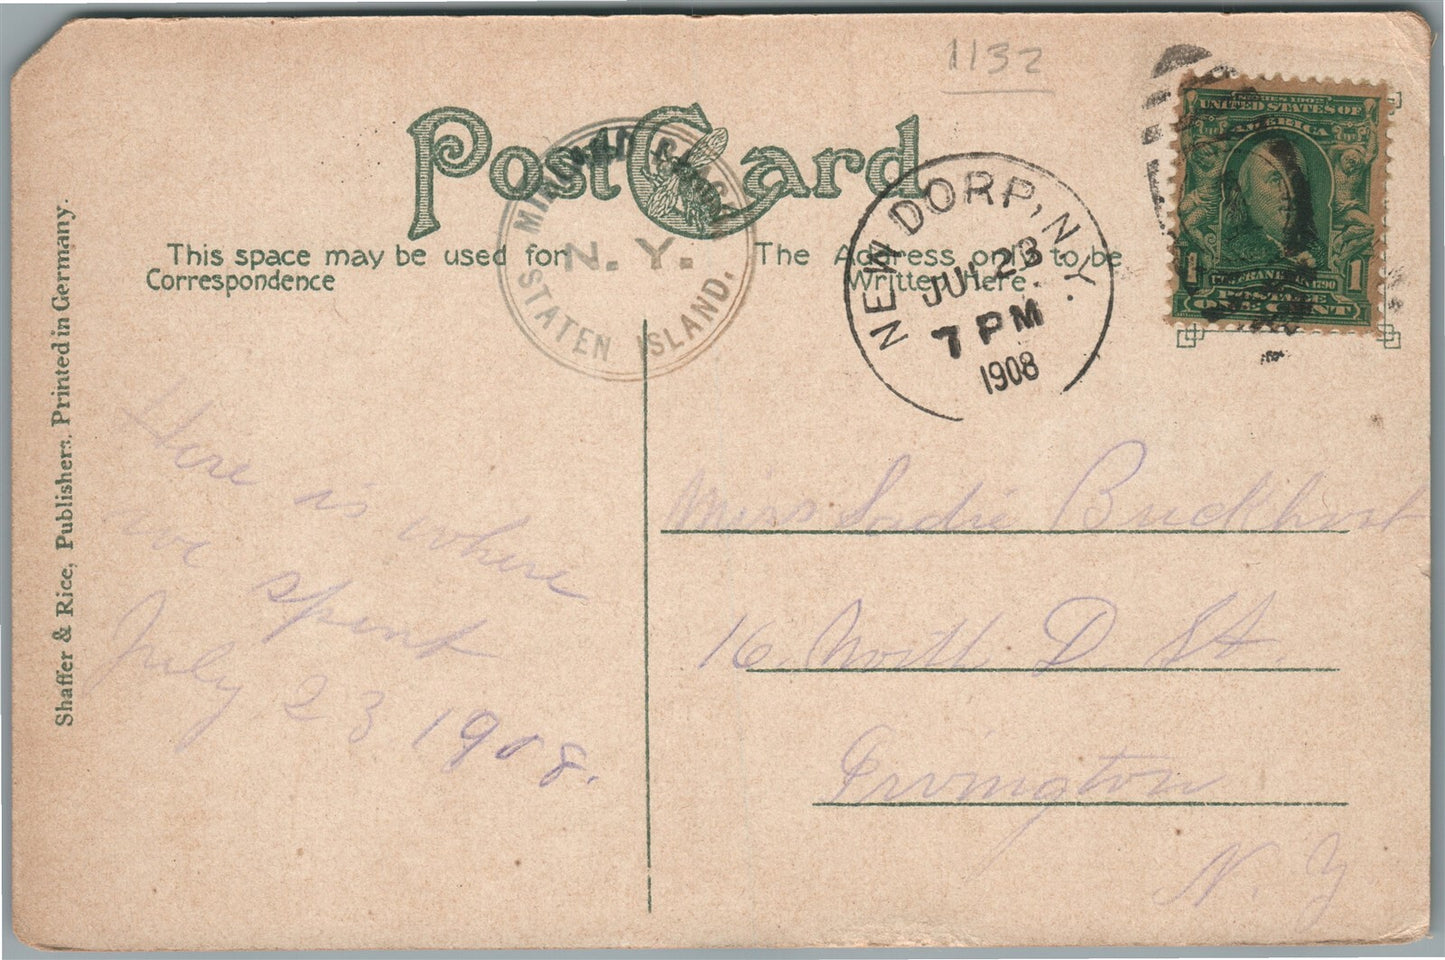 1132
Post Card
MIDLAND BEACH
N. Y.
STATEN ISLAND.
NEW DORP, N.Y.
JUL 23
7 PM
1908
SERIES 1902
UNITED STATES OF
AMERICA
1 FRANKLIN 1790 1
POSTAGE
ONE CENT
This space may be used for
Correspondence
The Address only to be
Written Here.
Shaffer & Rice, Publishers, Printed in Germany.
Here is where
we spent
July 23 1908.
Miss Sadie Buckhout
16 North D St.
Irvington
N. Y